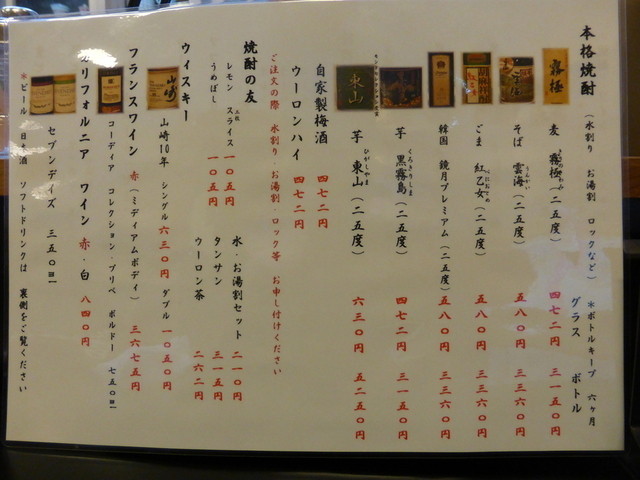 本格焼酎（水割り お湯割 ロックなど）
※ボトルキープ 六ヶ月
グラス ボトル
麦 霧極（二五度） 四七二円 三一五〇円
そば 雲海（二五度） 五八〇円 三三六〇円
うんかい
ごま 紅乙女（二五度） 五八〇円 三三六〇円
べにおとめ
韓国 鏡月プレミアム（二五度） 五八〇円 三三六〇円
芋 黒霧島（二五度） 四七二円 三一五〇円
くろきりしま
芋 東山（二五度） 六三〇円 五二五〇円
ひがしやま
自家製梅酒 四七二円
ウーロンハイ 四七二円
ご注文の際 水割り お湯割 ロック等 お申し付けください
焼酎の友
レモン スライス 一〇五円
うめぼし 一〇五円
水・お湯割セット 二一〇円
タンサン 三一五円
ウーロン茶 二六二円
ウィスキー
山崎10年 シングル 六三〇円 ダブル 一〇五〇円
フランスワイン 赤（ミディアムボディ） 三六七五円
コーディア コレクション・プリベ ボルドー 七五〇ml
カリフォルニア ワイン 赤・白 八四〇円
セブンデイズ 三五〇ml
※ビール 日本酒 ソフトドリンクは 裏側をご覧ください
霧極
胡麻祥酎
東山
山崎